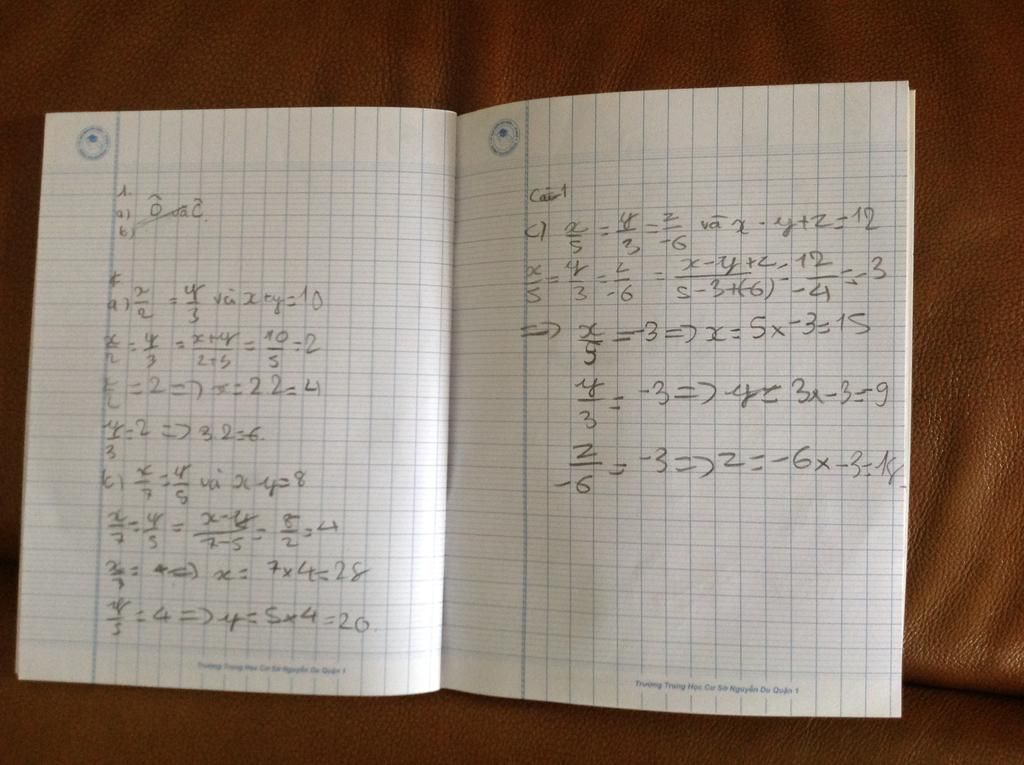 1.
a) Ô
b)
a) x/2 = y/3 và x+y=10
x/2 = y/3 = x+y/2+3 = 10/5 = 2
x/2 = 2 => x = 2.2 = 4
y/3 = 2 => 3.2 = 6.
b) x/7 = y/5 và x-y=8
x/7 = y/5 = x-y/7-5 = 8/2 = 4
x/7 = 4 => x = 7x4 = 28
y/5 = 4 => y = 5x4 = 20.
Trường Trung Học Cơ Sở Nguyễn Du Quận 1
Câu 1
c) x/5 = y/3 = z/-6 và x - y + z = 12
x/5 = y/3 = z/-6 = x-y+z/5-3+(-6) = 12/-4 = -3
=> x/5 = -3 => x = 5x-3 = 15
y/3 = -3 => y = 3x-3 = 9
z/-6 = -3 => z = -6x-3 = 18
Trường Trung Học Cơ Sở Nguyễn Du Quận 1